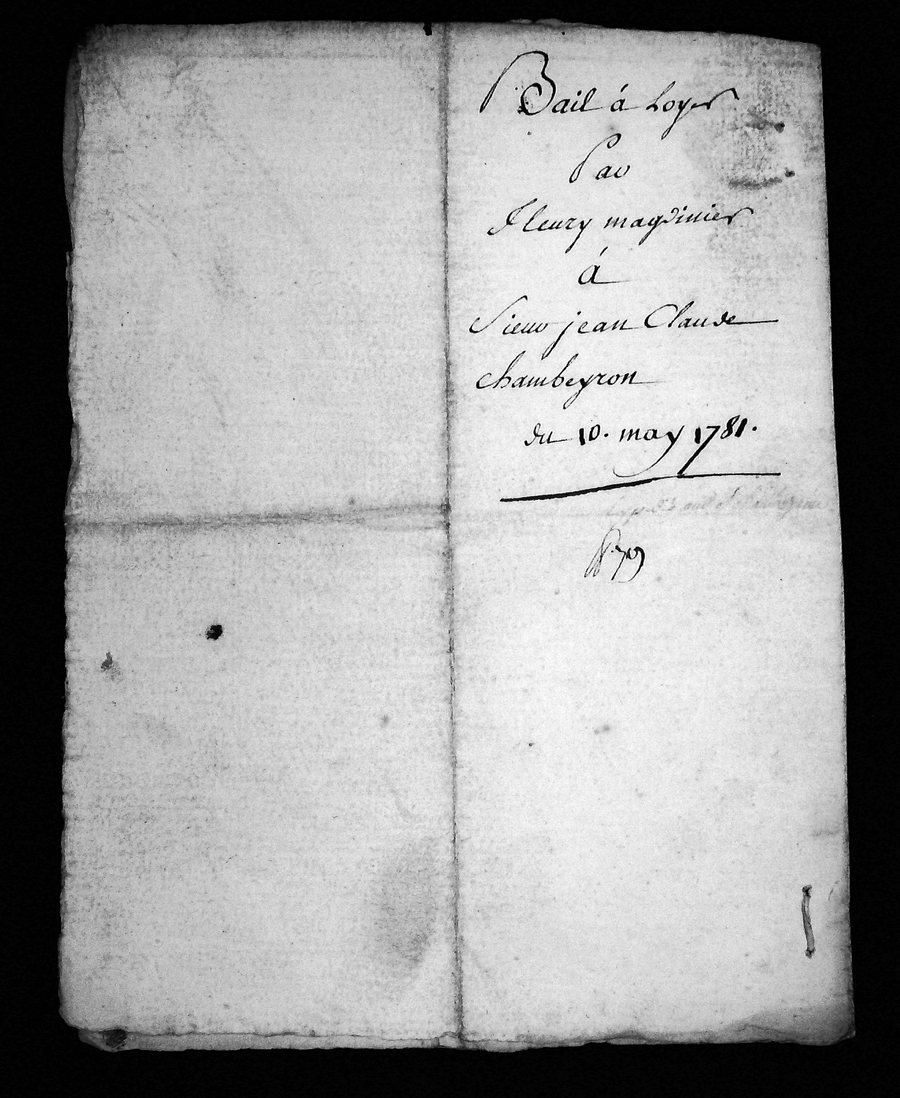 Bail á Loyer
Par
fleury magdinier
á
Sieur jean Claude
chambeyron
du 10. may 1781.